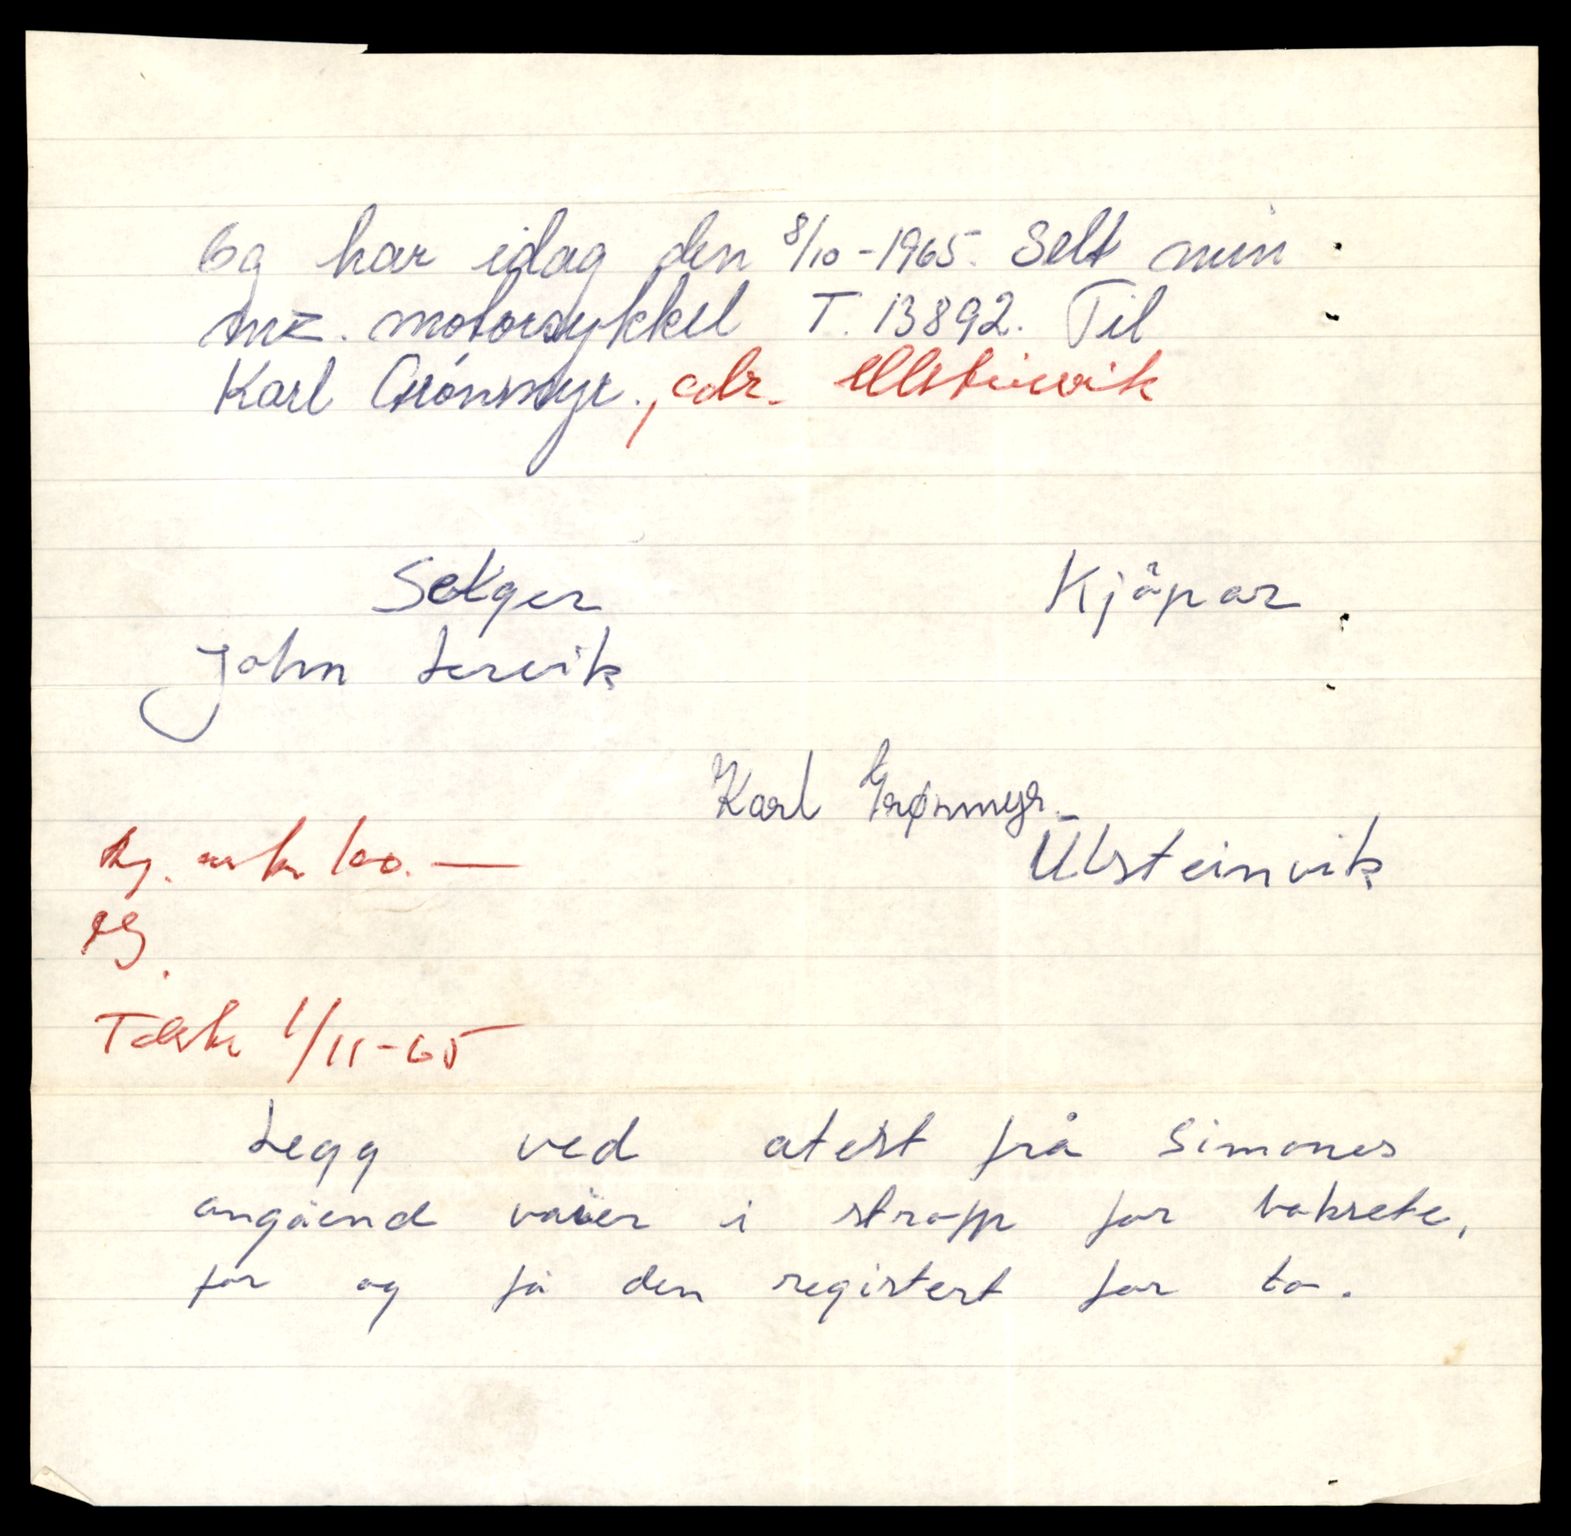 Eg har idag den 8/10-1965. Selt min
mz. motorsykkel T. 13892. Til
Karl Grónmyr., adr. Ulsteinvik
Selger Kjåpar
John Lervik
Karl Grønmyr.
Ulsteinvik
kr 100.—
1/11-65
Legg ved atest frå Simones
angåend vaier i stropp for baksete,
for og få den registert for to.